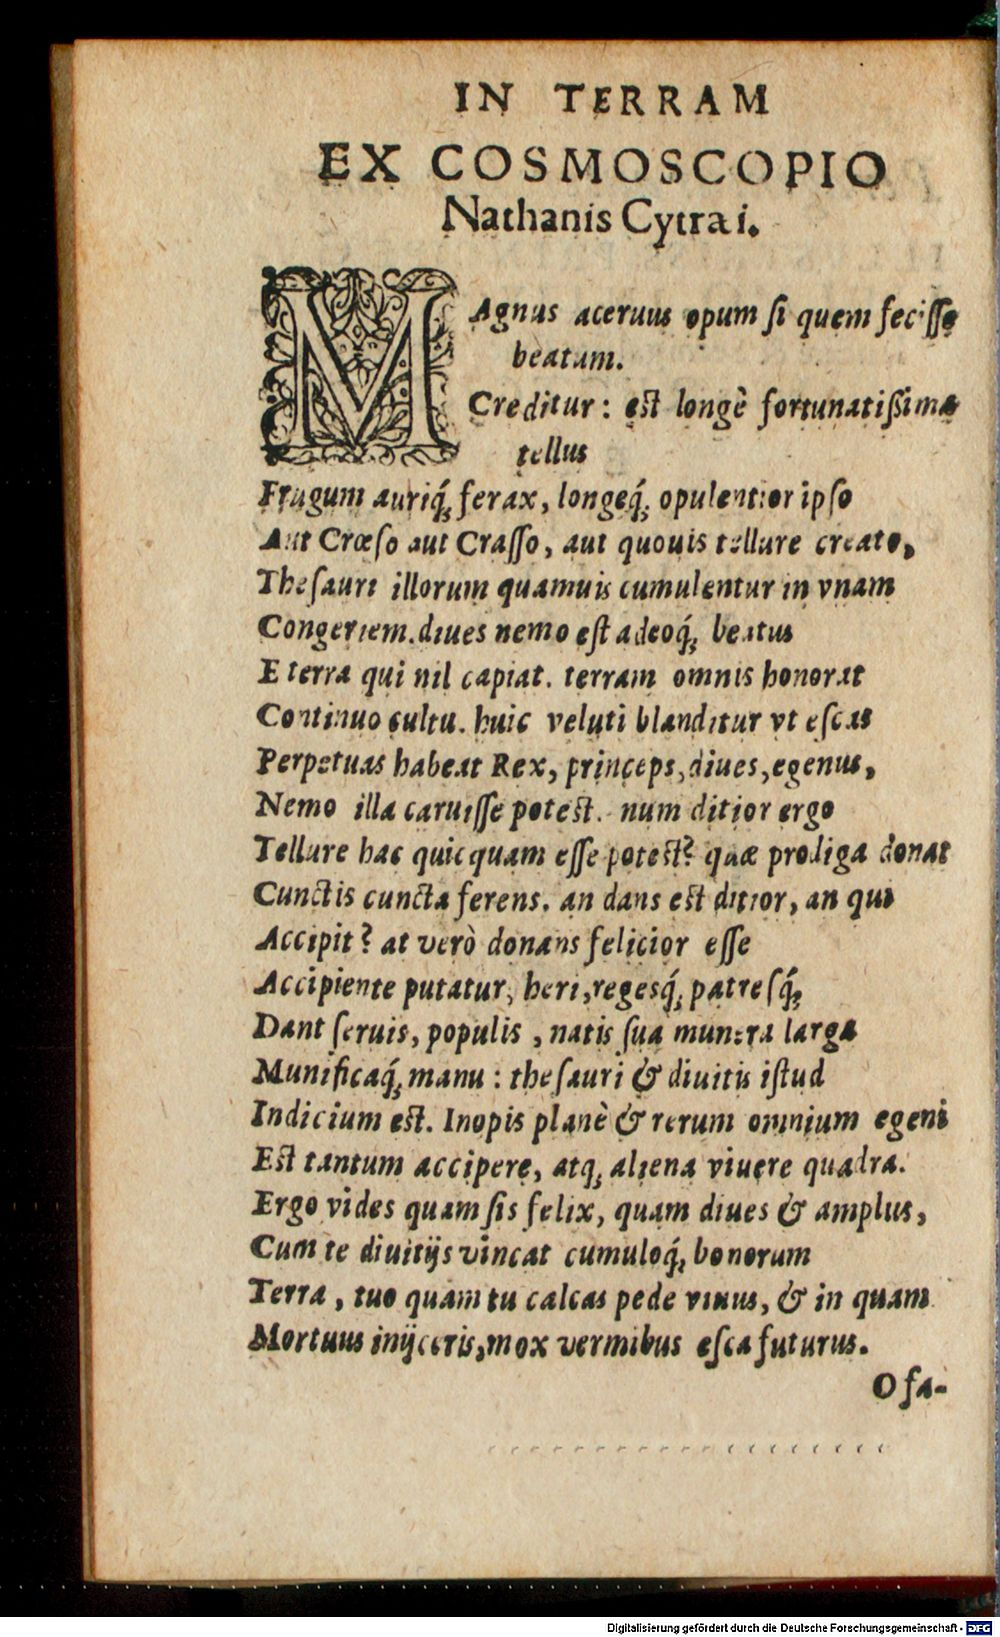 IN TERRAM
EX COSMOSCOPIO
Nathanis Cytrai.
MAgnus aceruus opum si quem fecisse
beatum.
Creditur: est longè fortunatißima
tellus
Frugum auriq́; ferax, longeq́; opulentior ipso
Aut Crœso aut Crasso, aut quouis tellure creato,
Thesauri illorum quamuis cumulentur in vnam
Congeriem. diues nemo est adeoq́; beatus
E terra qui nil capiat. terram omnis honorat
Continuo cultu. huic veluti blanditur vt escas
Perpetuas habeat Rex, princeps, diues, egenus,
Nemo illa caruisse potest. num ditior ergo
Tellure hac quicquam esse potest? quæ prodiga donat
Cunctis cuncta ferens. an dans est ditior, an qui
Accipit? at verò donans felicior esse
Accipiente putatur, heri, regesq́; patresq́;
Dant seruis, populis, natis sua munera larga
Munificaq́; manu: thesauri & diuitis istud
Indicium est. Inopis planè & rerum omnium egeni
Est tantum accipere, atq; aliena viuere quadra.
Ergo vides quam sis felix, quam diues & amplus,
Cum te diuitijs vincat cumuloq́; bonorum
Terra, tuo quam tu calcas pede viuus, & in quam
Mortuus inijceris, mox vermibus esca futurus.
O fa-
Digitalisierung gefördert durch die Deutsche Forschungsgemeinschaft - DFG